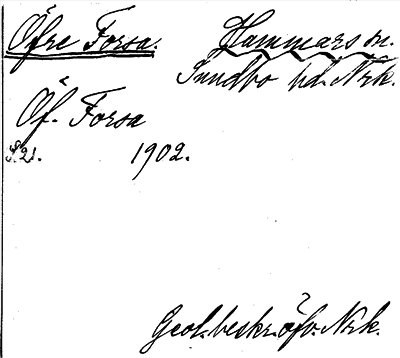 Öfre Forsa. Hammars sn.
Sundbo hd. Nrk.
Öf. Forsa
S. 21. 1902.
Geol. beskr. öfv. Nrk.